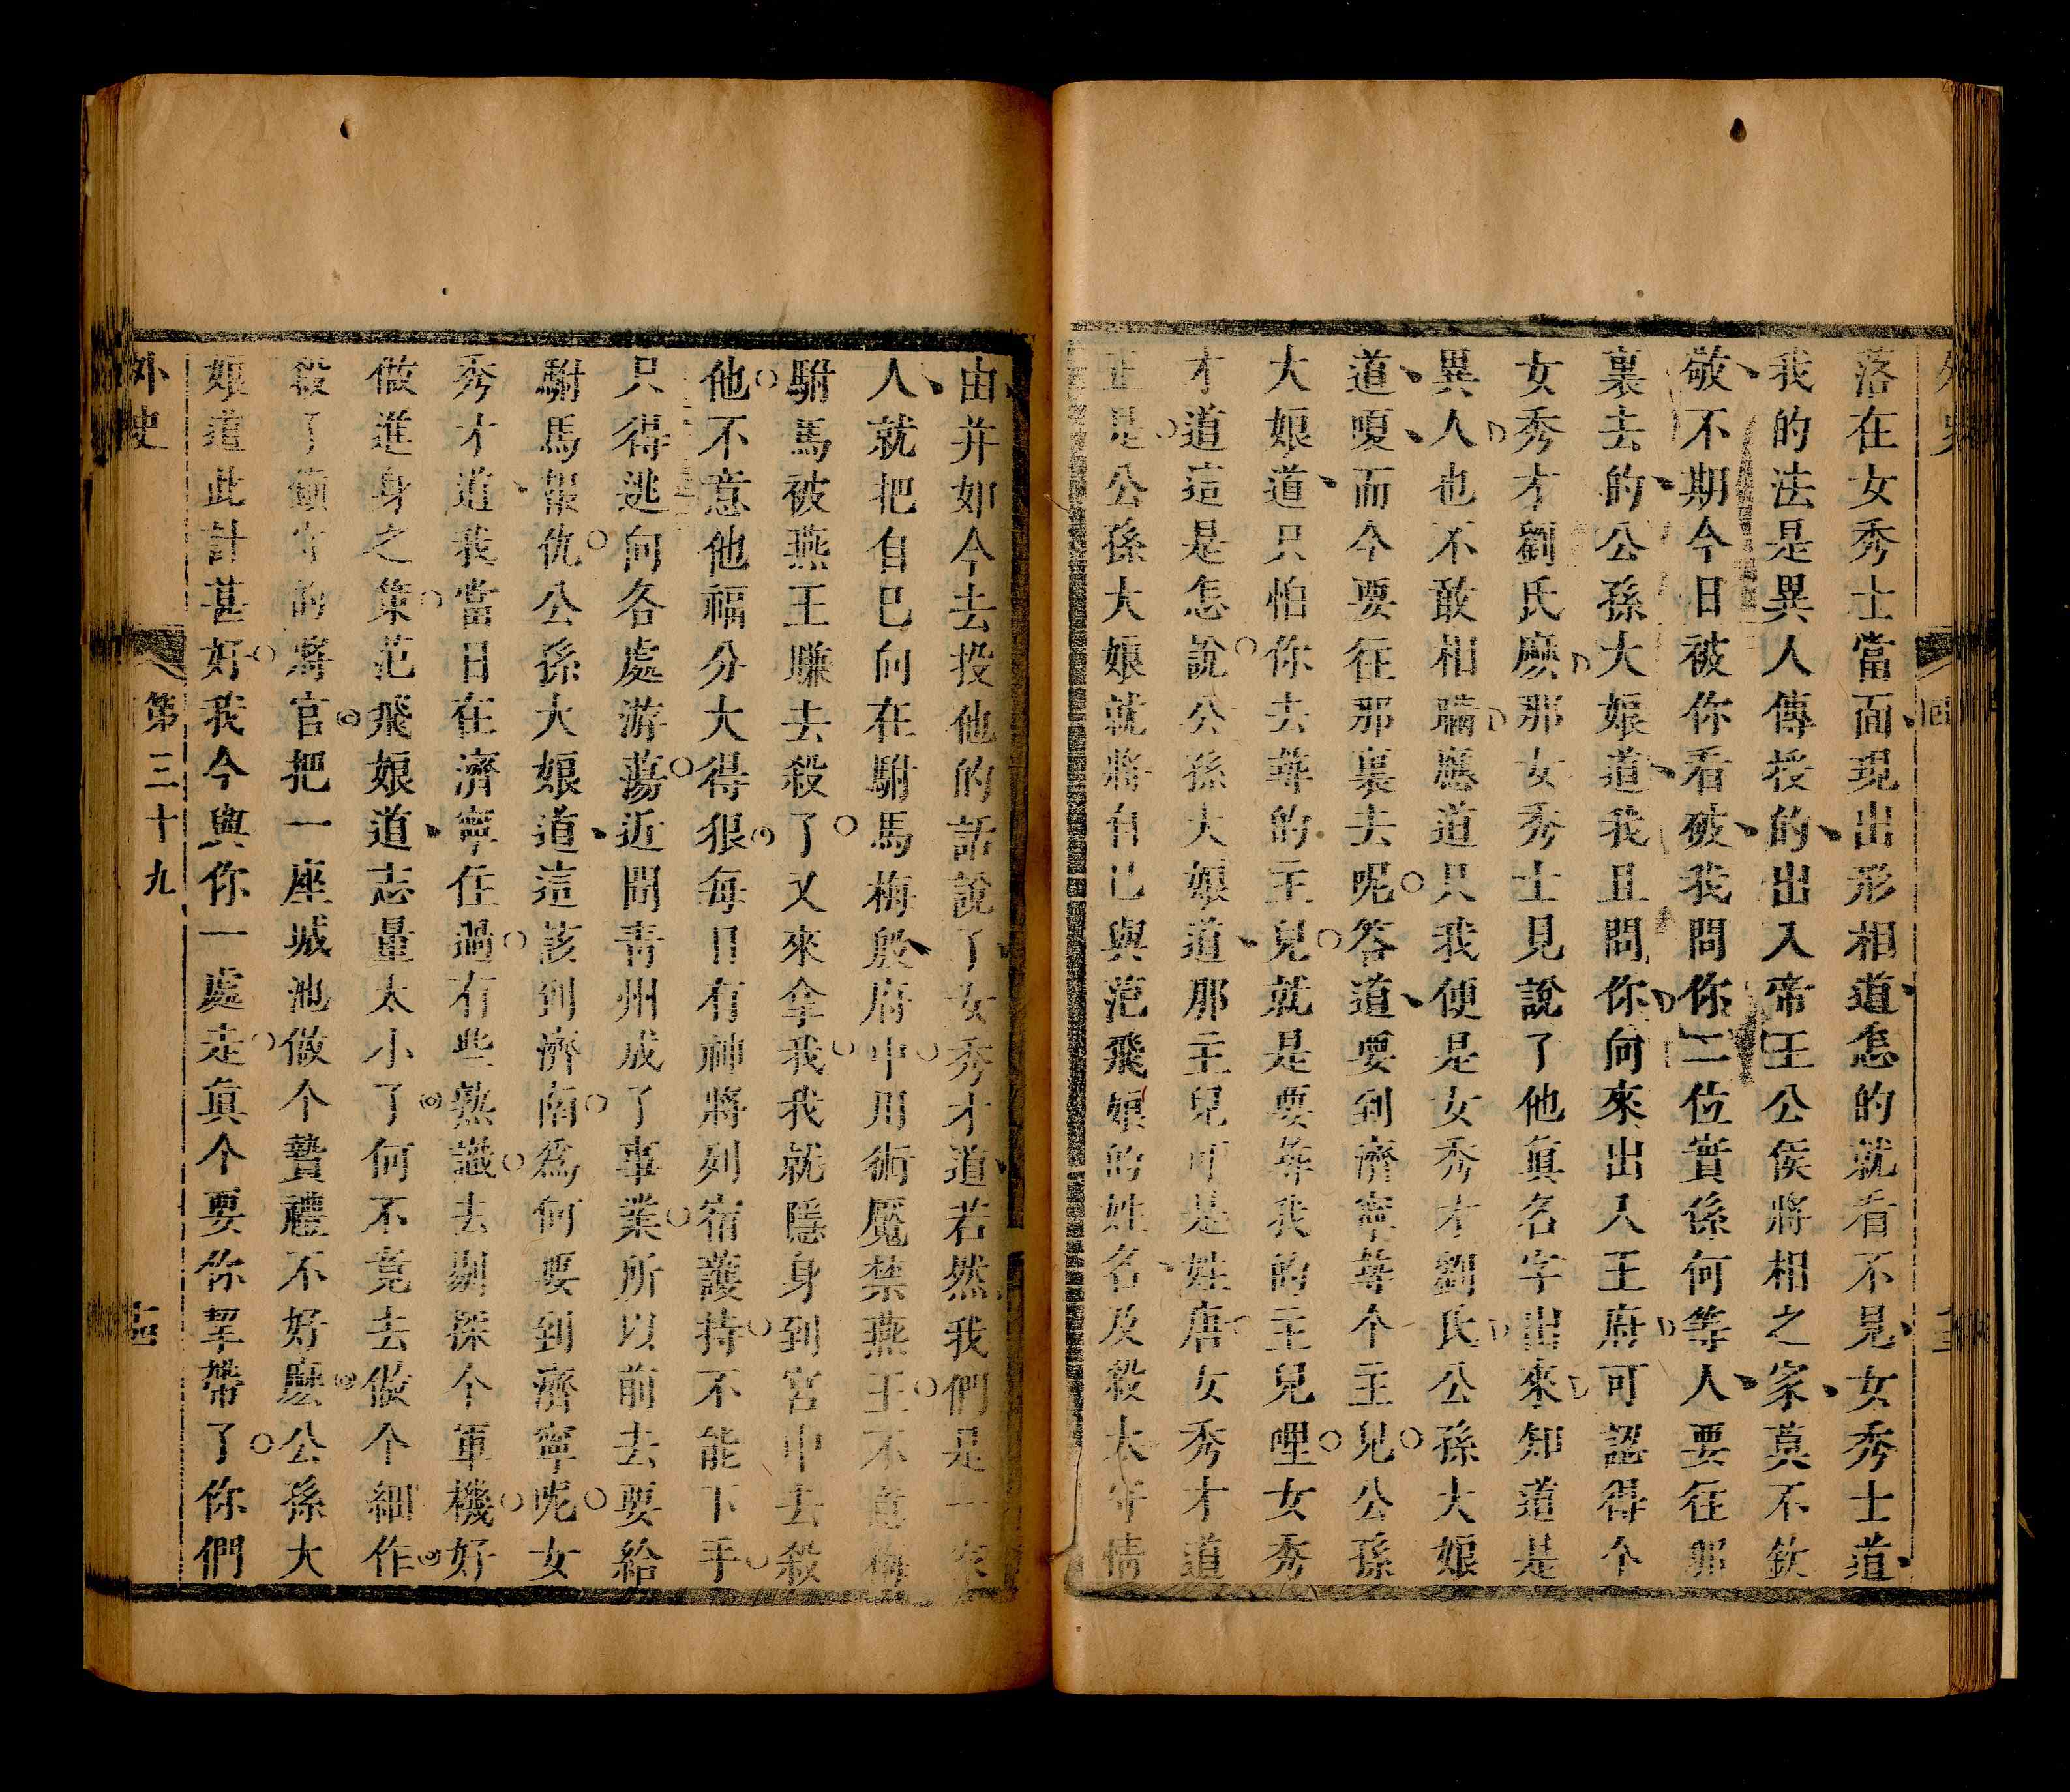 外史
回
落在女秀士當面現出形相道怎的就看不見女秀士道
我的法是異人傳授的出入帝王公侯將相之家莫不欽
敬不期今日被你看破我問你二位實係何等人要往那
裏去的公孫大娘道我且問你向來出入王府可認得个
女秀才劉氏麽那女秀士見說了他真名字出來知道是
異人也不敢相瞞應道只我便是女秀才劉氏公孫大娘
道嗄而今要往那裏去呢答道要到濟寧等个主兒公孫
大娘道只怕你去等的主兒就是要等我的主兒哩女秀
才道這是怎說公孫大娘道那主兒可是姓唐女秀才道
正是公孫大娘就將自已與范飛娘的姓名及殺太守情
由并如今去投他的話說了女秀才道若然我們是一家
人就把自巳向在駙馬梅殷府中用術魘禁燕王不意梅
駙馬被燕王賺去殺了又來拿我我就隱身到宮中去殺
他不意他福分大得狠每日有神將列宿護持不能下手
只得逃向各處游蕩近聞青州成了事業所以前去要給
駙馬報仇公孫大娘道這該到濟南爲何要到濟寧呢女
秀才道我當日在濟寧住過有些熟識去剔探个軍機好
做進身之策范飛娘道志量太小了何不竟去做个細作
殺了鎮守的將官把一座城池做个贄禮不好麽公孫大
娘道此計甚好我今與你一處走真个要你挈帶了你們
外史
第三十九